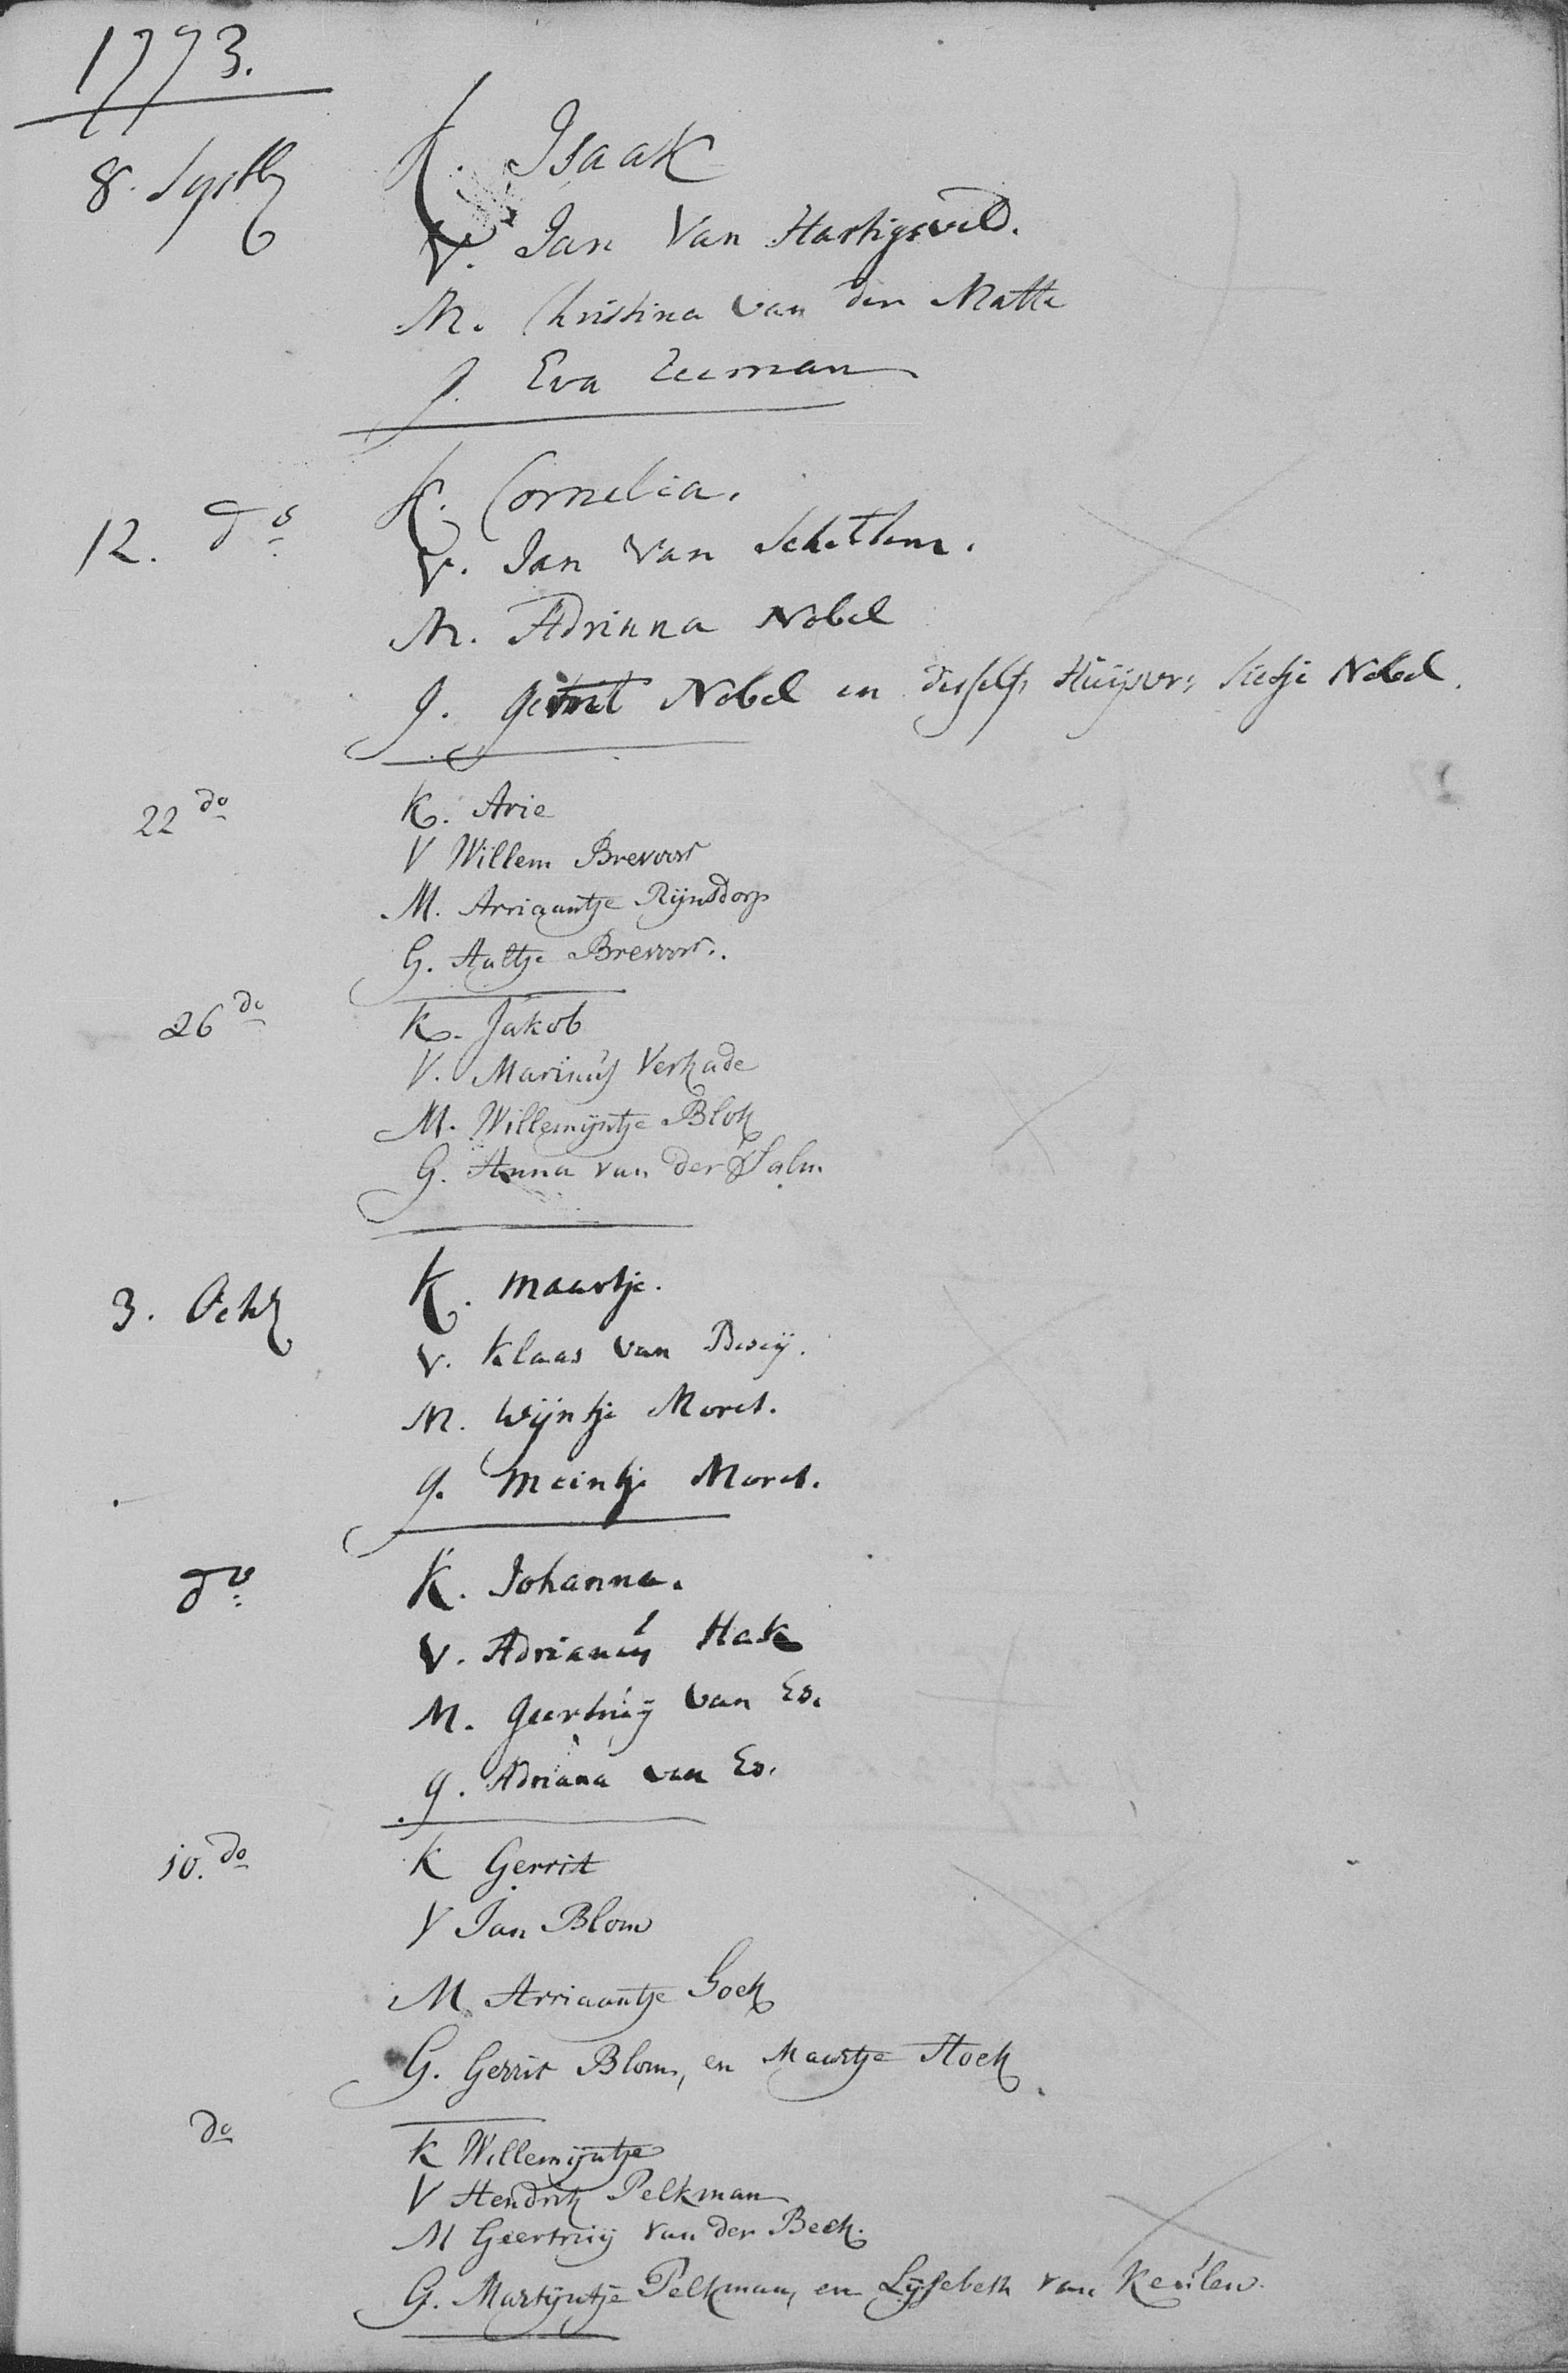 1773.
8. Septb K. Isaak
V. Jan Van Hartigsveld.
M. Christina van der Matte
g. Eva Zeeman
12. do K. Cornelia.
V. Jan Van Schettem.
M. Adriana Nobel
g. Gerrit Nobel en desselfs Huijsvr: Sietje Nobel.
22 do K. Arie
V Willem Brevoort
M. Arriaantje Rijnsdorp
G. Aaltje Brevoort.
26 do K. Jakob
V. Marinus Verkade
M. Willemijntje Blok
G. Anna van der Salm
3. Octb K. Maartje.
V. Klaas van
M. Wijntje Moret.
g. Meintje Moret.
do K. Johanna.
V. Adrianus Hak
M. Geertruij van Es.
g. Adriana van Es.
10. do K Gerrit
V Jan Blom
M Arriaantje Hoek
G. Gerrit Blom, en Maartje Hoek
do K Willemijntje
V Hendrik Pelkman
M Geertruij van der Beek.
G. Martijntje Pelkman, en Lijsebeth van Keulen.